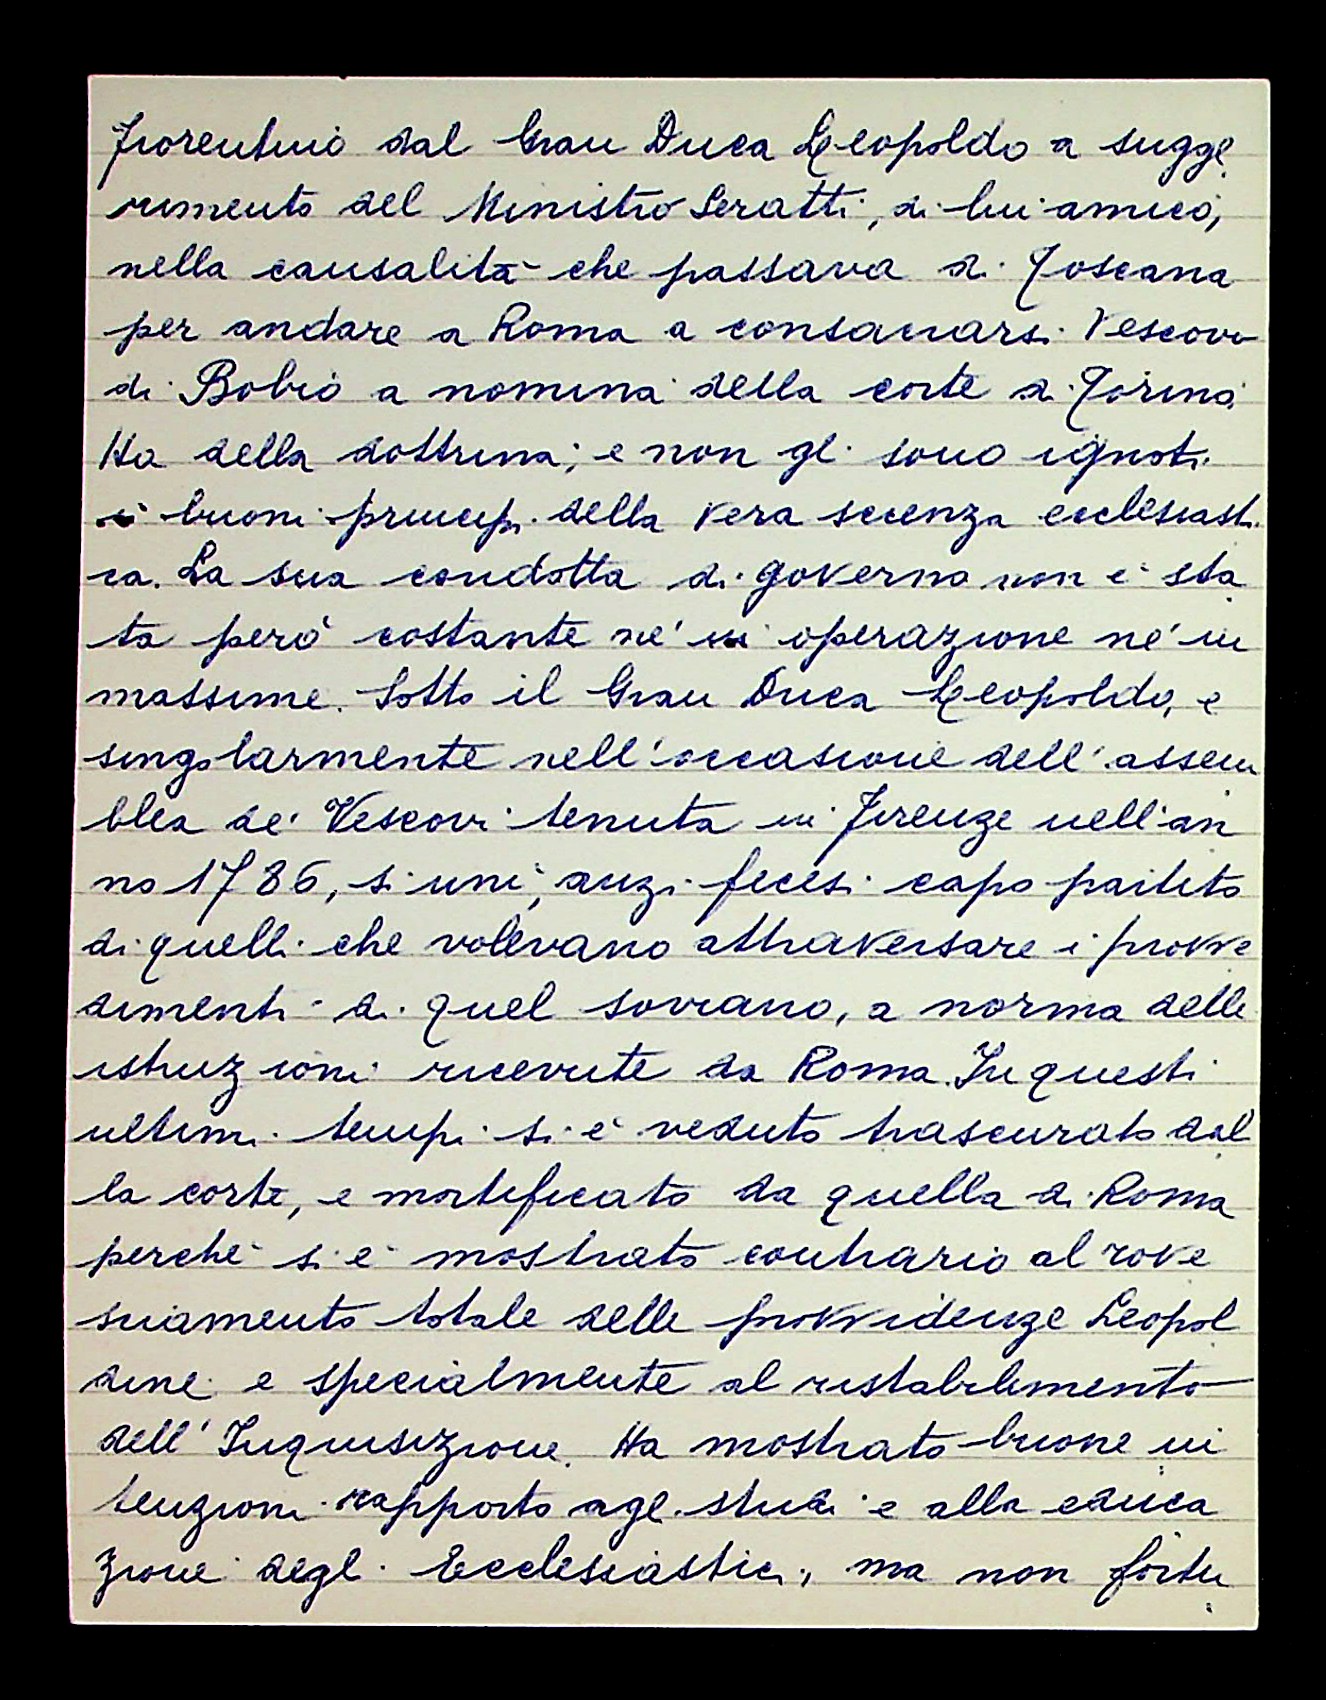 Fiorentino dal Gran Duca Leopoldo a sugge
rimento del Ministro Seratti, di lui amico,
nella causalità che passava di Toscana
per andare a Roma a consacrarsi Vescovo
di Bobio a nomina della corte di Torino
Ha della dottrina; e non gli sono ignoti
i buoni principi della vera scienza ecclesiasti
ca. La sua condotta di governo non è sta
ta però costante né in operazione né in
massime. Sotto il Gran Duca Leopoldo, e
singolarmente nell'occasione dell'assem
blea de' Vescovi tenuta in Firenze nell'an
no 1786, si unì, anzi fecesi capo partito
di quelli che volevano attraversare i provve
dimenti di quel sovrano, a norma delle
istruzioni ricevute da Roma. In questi
ultimi tempi si è veduto trascurato dal
la corte, e mortificato da quella di Roma
perchè si è mostrato contrario al rove
sciamento totale delle provvidenze Leopol
dine e specialmente al ristabilimento
dell'Inquisizione. Ha mostrato buone in
tenzioni rapporto agli studi e alla educa
zione degli Ecclesiastici, ma non fortu